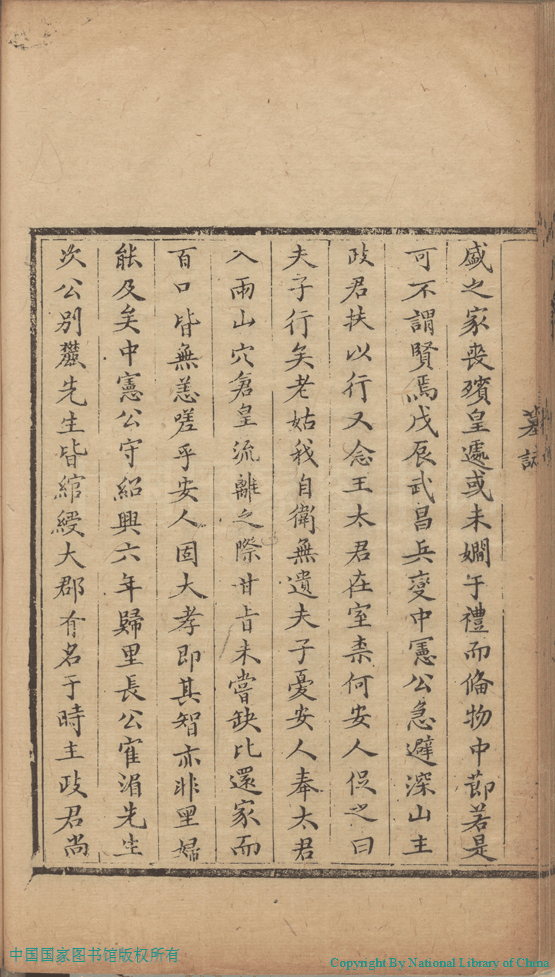 盛之家喪殯皇遽或未嫺于禮而偹物中莭若是
可不謂賢焉戊辰武昌兵變中憲公急避深山主
政君扶以行又念王太君在室柰何安人促之曰
夫子行矣老姑我自衛無遺夫子憂安人奉太君
入兩山穴倉皇流離之際甘旨未嘗缺比還家而
百口皆無恙嗟乎安人固大孝即其智亦非里婦
能及矣中憲公守紹興六年歸里長公寉湄先生
次公別麓先生皆綰綬大郡有名于時主政君尚
墓誌
中国国家图书馆版权所有
Copyright By National Library of China